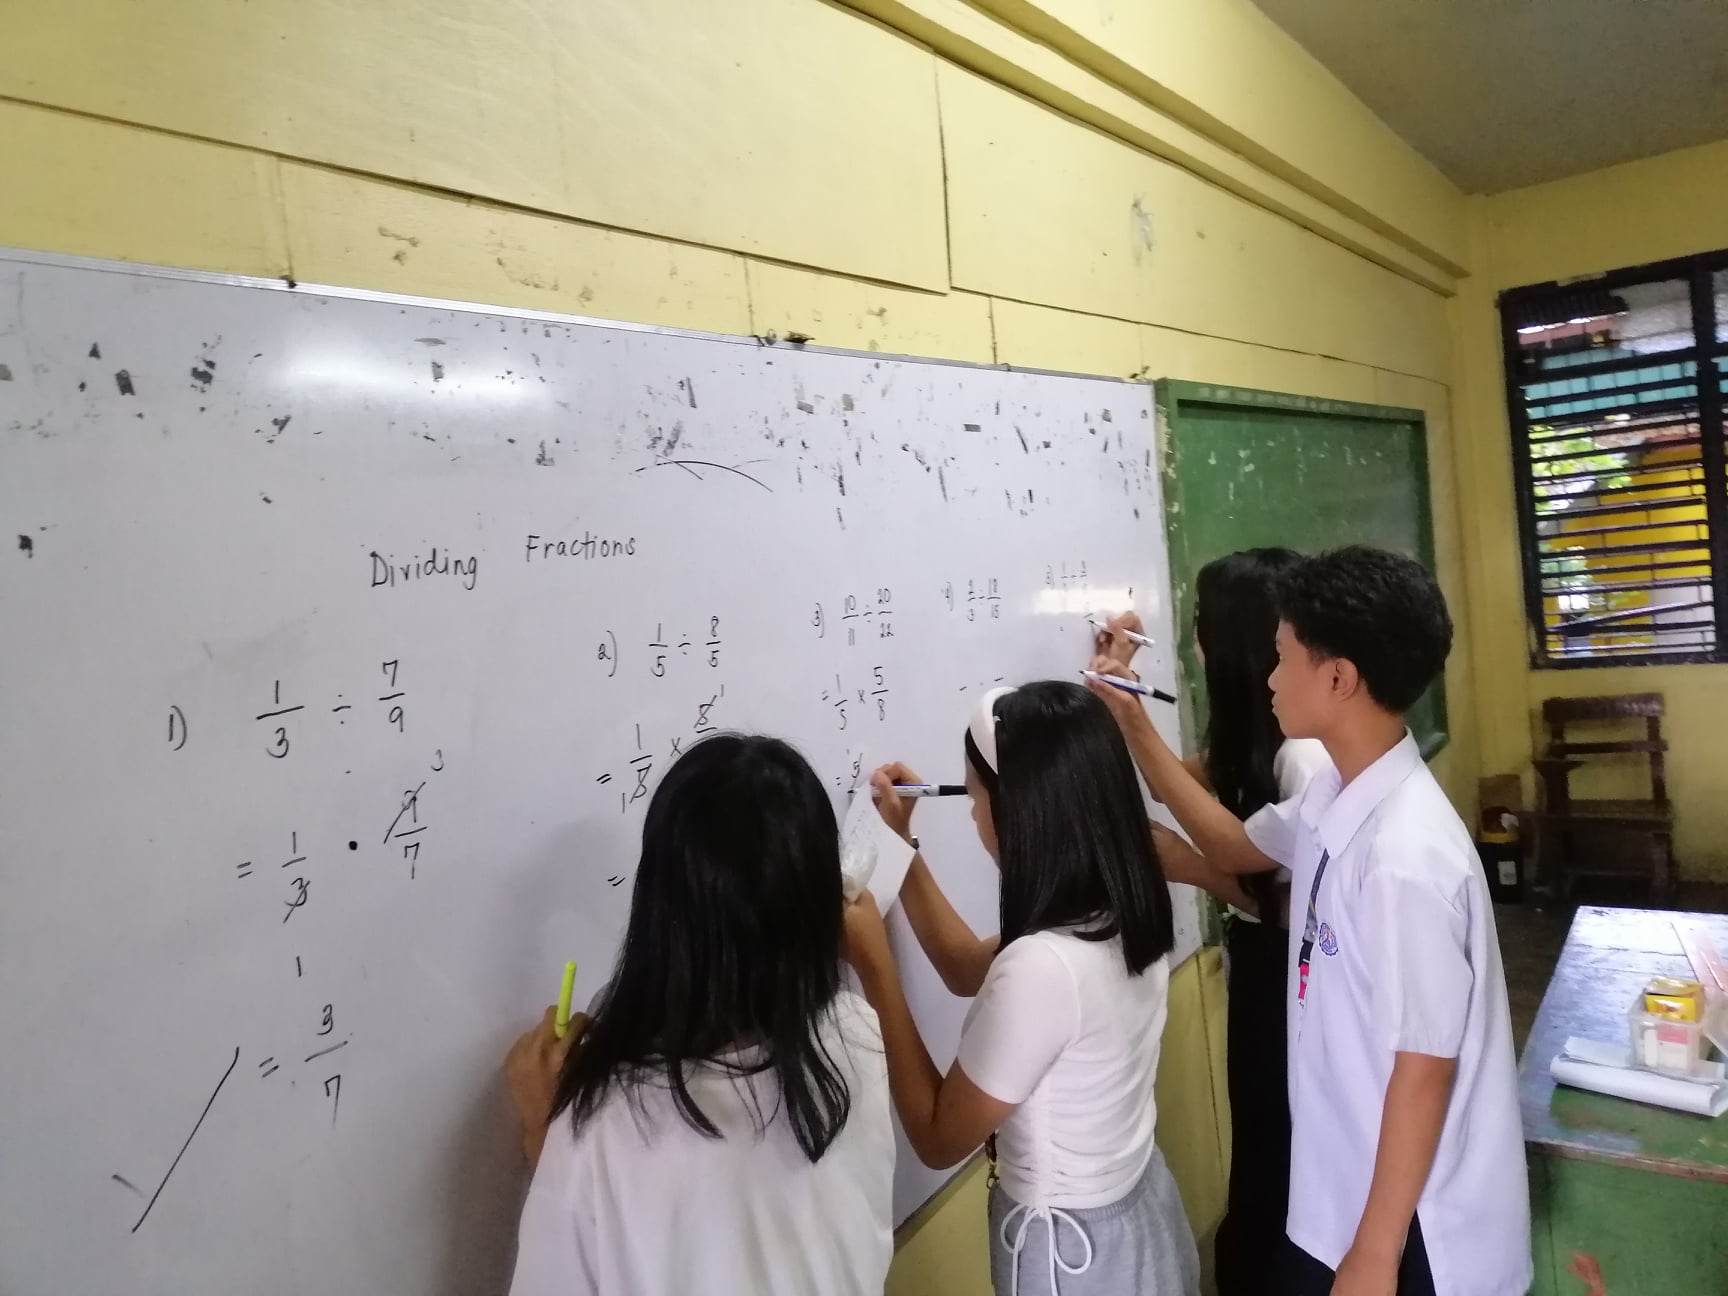 Dividing Fractions
1) 1/3 ÷ 7/9
= 1/3 · 9/7
3
1
= 3/7
2) 1/5 ÷ 8/5
= 1/5 ×
1
1
=
3) 10/11 ÷ 20/22
= 1/5 × 5/8
= 5
4) 2/3 ÷ 18/15
5)